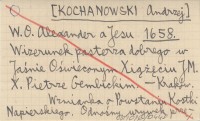 [KOCHANOWSKI Andrzej]
W.O. Alexander a Jesu 1658.
Wizerunek pasterza dobrego w
Jaśnie Oświeconym Xiążęciu J.M.
X. Pietrze Gembickim. — Krak.
Wzmianka o Powstaniu Kostki
Napierskiego. Odnośny urywek